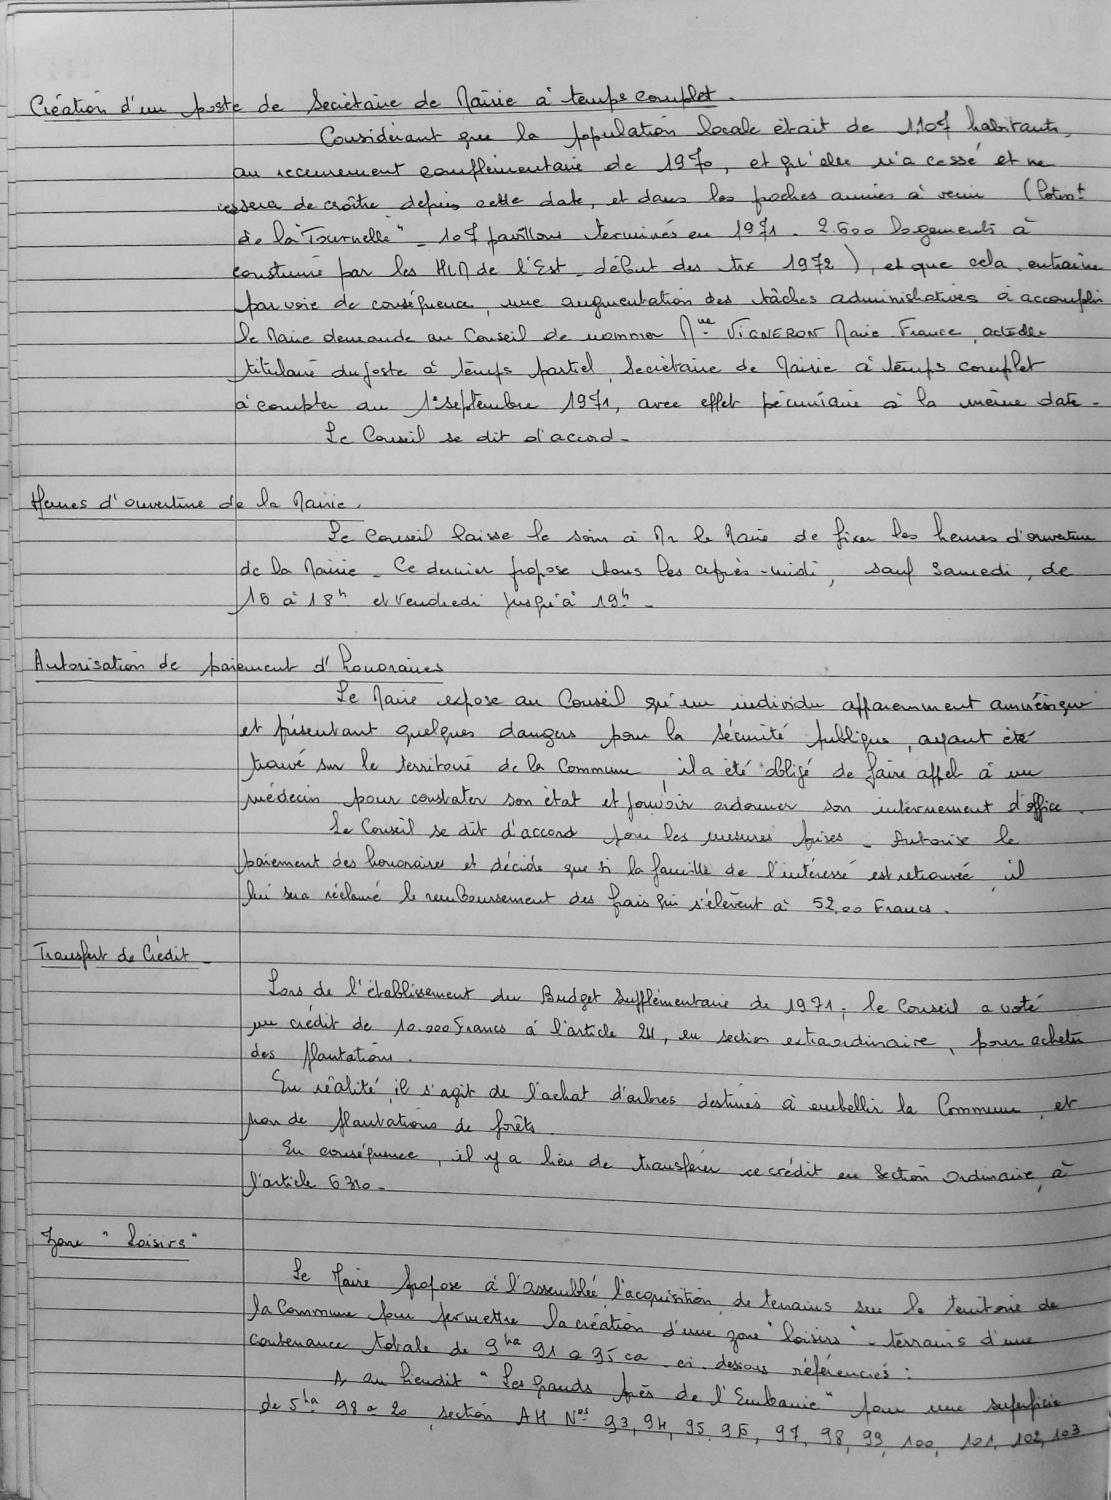 Création d'un poste de Secrétaire de Mairie à temps complet.
Considérant que la population locale était de 1107 habitants,
au recensement complémentaire de 1970, et qu'elle n'a cessé et ne
cessera de croître depuis cette date, et dans les proches années à venir (Lotismt
de la "Tournelle" - 107 pavillons terminés en 1971 - 2.600 logements à
construire par les HLM de l'Est - début des trx 1972), et que cela entraîne
par voie de conséquence, une augmentation des tâches administratives à accomplir
le Maire demande au Conseil de nommer Mme VIGNERON Marie France, actuelle
titulaire du poste à temps partiel, Secrétaire de Mairie à temps complet
à compter du 1er septembre 1971, avec effet pécuniaire à la même date -
Le Conseil se dit d'accord -
Heures d'ouverture de la Mairie.
Le Conseil laisse le soin à Mr le Maire de fixer les heures d'ouverture
de la Mairie - Ce dernier propose tous les après-midi, sauf Samedi, de
16 à 18h et Vendredi jusqu'à 19h -
Autorisation de paiement d'honoraires
Le Maire expose au Conseil qu'un individu apparemment amnésique
et présentant quelques dangers pour la sécurité publique, ayant été
trouvé sur le territoire de la Commune, il a été obligé de faire appel à un
médecin pour constater son état et pouvoir ordonner son internement d'office.
Le Conseil se dit d'accord pour les mesures prises - Autorise le
paiement des honoraires et décide que si la famille de l'intéressé est retrouvée, il
lui sera réclamé le remboursement des frais qui s'élèvent à 52,00 Francs.
Transfert de Crédit -
Lors de l'établissement du Budget Supplémentaire de 1971, le Conseil a voté
un crédit de 10.000 Francs à l'article 24, en section extraordinaire, pour acheter
des plantations.
En réalité, il s'agit de l'achat d'arbres destinés à embellir la Commune, et
non de plantations de forêts.
En conséquence, il y a lieu de transférer ce crédit en Section Ordinaire, à
l'article 6310 -
Zone "Loisirs"
Le Maire propose à l'assemblée l'acquisition de terrains sur le territoire de
la Commune pour permettre la création d'une zone "loisirs" - terrains d'une
contenance totale de 9ha 91 a 95 ca - ci-dessous référenciés :
au lieudit "Les Grands prés de l'Embanie" pour une superficie
de 5ha 98 a 20, section AH Nos 93, 94, 95, 96, 97, 98, 99, 100, 101, 102, 103